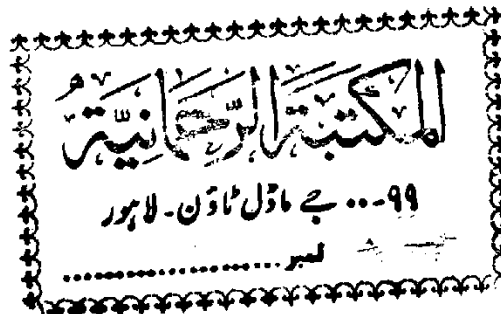 المكتبة الرحمانية
۹۹... جے ماڈل ٹاؤن - لاہور
نمبر ....................